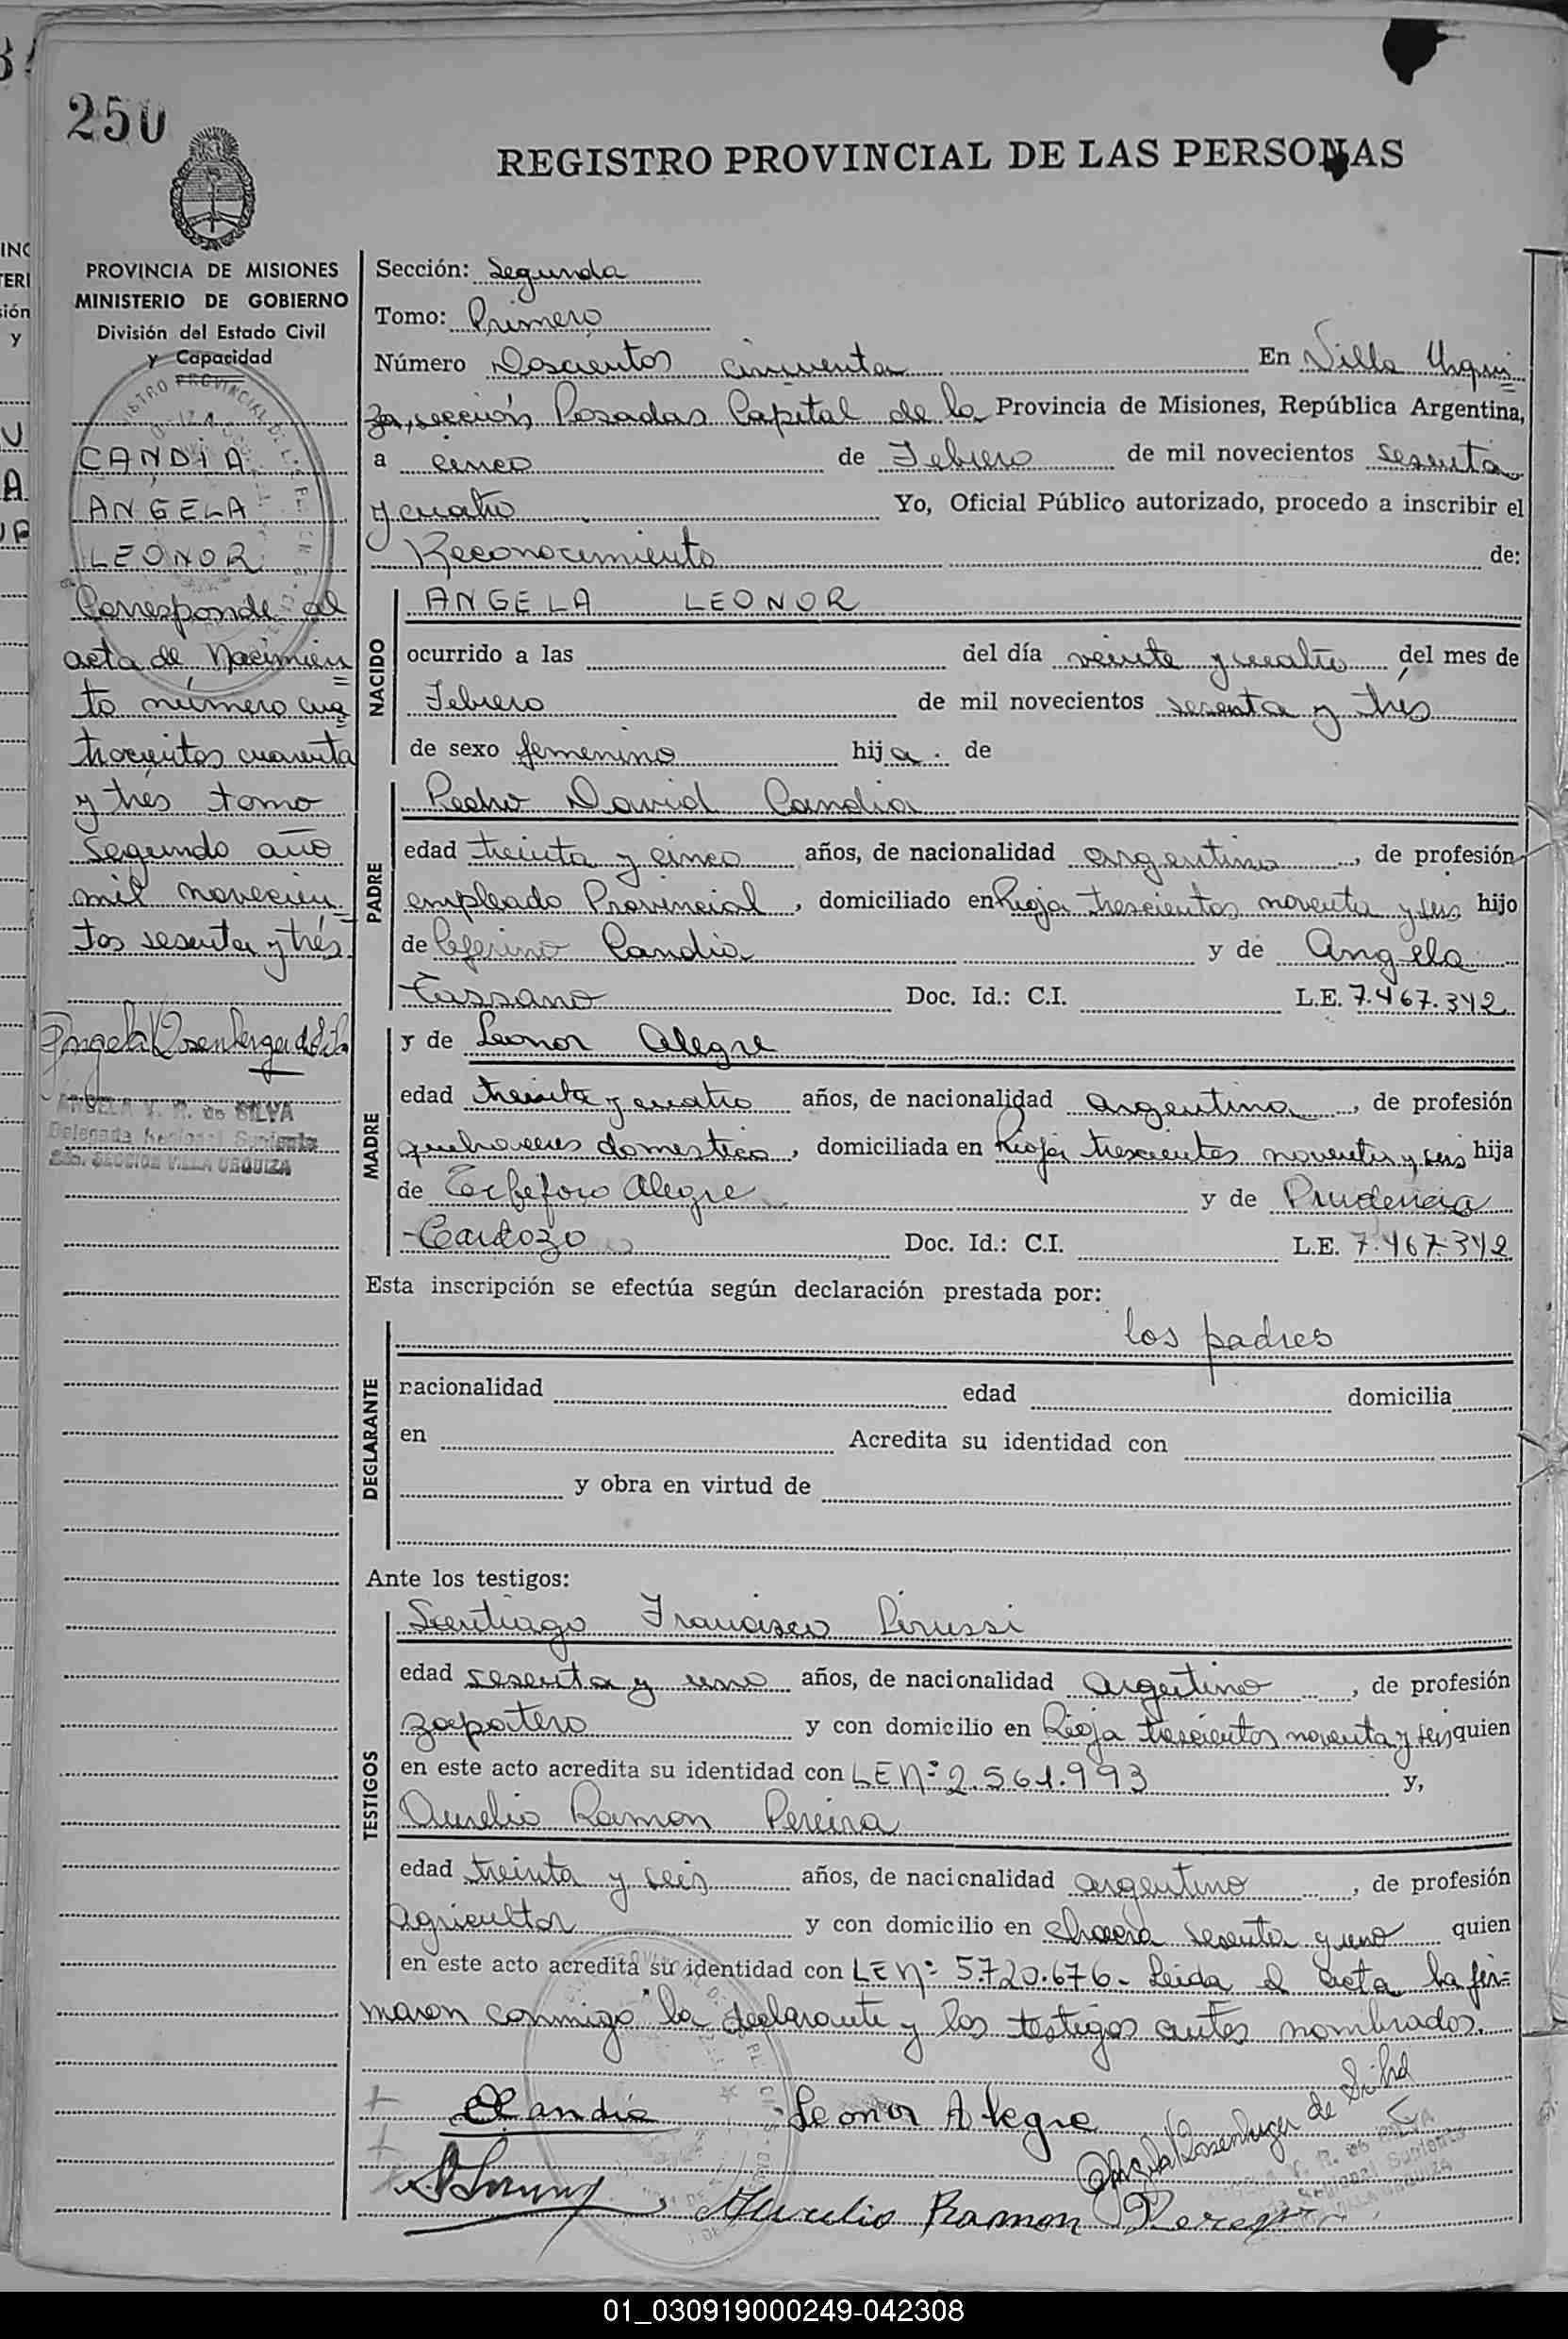 250
REGISTRO PROVINCIAL DE LAS PERSONAS
PROVINCIA DE MISIONES
MINISTERIO DE GOBIERNO
División del Estado Civil
y Capacidad
CANDIA
ANGELA
LEONOR
Corresponde al
acta de Nacimien=
to número cua=
trocientos cuarenta
y tres tomo
segundo año
mil novecien=
tos sesenta y trés
ANGELA V. R. de SILVA
Delegada Seccional Suplente
SECCION VILLA URQUIZA
Sección: Segunda
Tomo: Primero
Número Doscientos cincuenta En Villa Urqui=
za, sección Posadas Capital de la Provincia de Misiones, República Argentina,
a cinco de Febrero de mil novecientos sesenta
y cuatro Yo, Oficial Público autorizado, procedo a inscribir el
Reconocimiento de:
NACIDO
ANGELA LEONOR
ocurrido a las del día veinte y cuatro del mes de
Febrero de mil novecientos sesenta y trés
de sexo femenino hija. de
PADRE
Pedro David Candia
edad treinta y cinco años, de nacionalidad argentino, de profesión
empleado Provincial, domiciliado en Rioja trescientos noventa y seis hijo
de Ceferino Candia y de Angela
Tassano Doc. Id.: C.I. L.E. 7.467.342
MADRE
y de Leonor Alegre
edad treinta y cuatro años, de nacionalidad argentina, de profesión
quehaceres domestico, domiciliada en Rioja trescientos noventa y seis hija
de Alegre y de Prudencia
Cardozo Doc. Id.: C.I. L.E. 7.467.342
Esta inscripción se efectúa según declaración prestada por:
DECLARANTE
los padres
nacionalidad edad domicilia
en Acredita su identidad con
y obra en virtud de
Ante los testigos:
TESTIGOS
Santiago Francisco Pirussi
edad sesenta y uno años, de nacionalidad argentino, de profesión
zapatero y con domicilio en Rioja trescientos noventa y seis quien
en este acto acredita su identidad con LE Nº 2.561.993 y,
Aurelio Ramon Pereira
edad treinta y seis años, de nacionalidad argentino, de profesión
agricultor y con domicilio en chacra sesenta y uno quien
en este acto acredita su identidad con LE Nº 5.720.676 - Leida el acta la fir=
maron conmigo la declarante y los testigos antes nombrados.
Candia Leonor Alegre
Angela Rosenberger de Silva
Aurelio Ramon
01_030919000249-042308